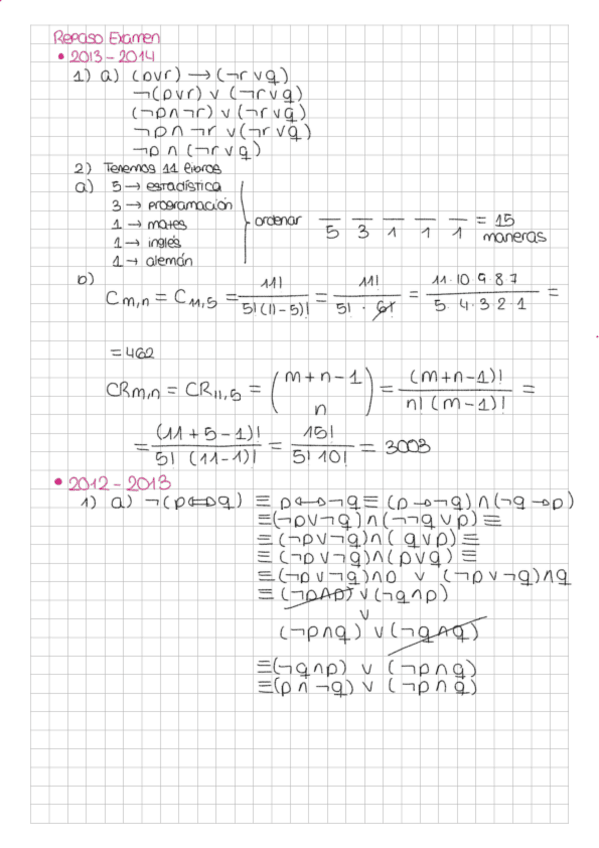 Repaso Examen
• 2013 - 2014
1) a) (p∨r) → (¬r ∨ q)
¬(p∨r) ∨ (¬r ∨ q)
(¬p∧¬r) ∨ (¬r ∨ q)
¬p ∧ ¬r ∨ (¬r ∨ q)
¬p ∧ (¬r ∨ q)
2) Tenemos 11 libros
a) 5 → estadística
3 → programación
1 → mates
1 → inglés
1 → alemán
ordenar 5 3 1 1 1 = 15 maneras
b) Cm,n = C11,5 = 11! / 5!(11-5)! = 11! / 5! · 6! = 11·10·9·8·7 / 5·4·3·2·1 =
= 462
CRm,n = CR11,5 = (m+n-1 n) = (m+n-1)! / n!(m-1)! =
= (11+5-1)! / 5! (11-1)! = 15! / 5! 10! = 3003
• 2012 - 2013
1) a) ¬(p↔q) ≡ p↔¬q ≡ (p→¬q) ∧ (¬q→p)
≡ (¬p∨¬q) ∧ (¬¬q∨p) ≡
≡ (¬p∨¬q) ∧ ( q∨p) ≡
≡ (¬p∨¬q) ∧ (p∨q) ≡
≡ (¬p∨¬q)∧p ∨ (¬p∨¬q)∧q
≡ (¬p∧p) ∨ (¬q∧p)
∨
(¬p∧q) ∨ (¬q∧q)
≡ (¬q∧p) ∨ (¬p∧q)
≡ (p∧¬q) ∨ (¬p∧q)